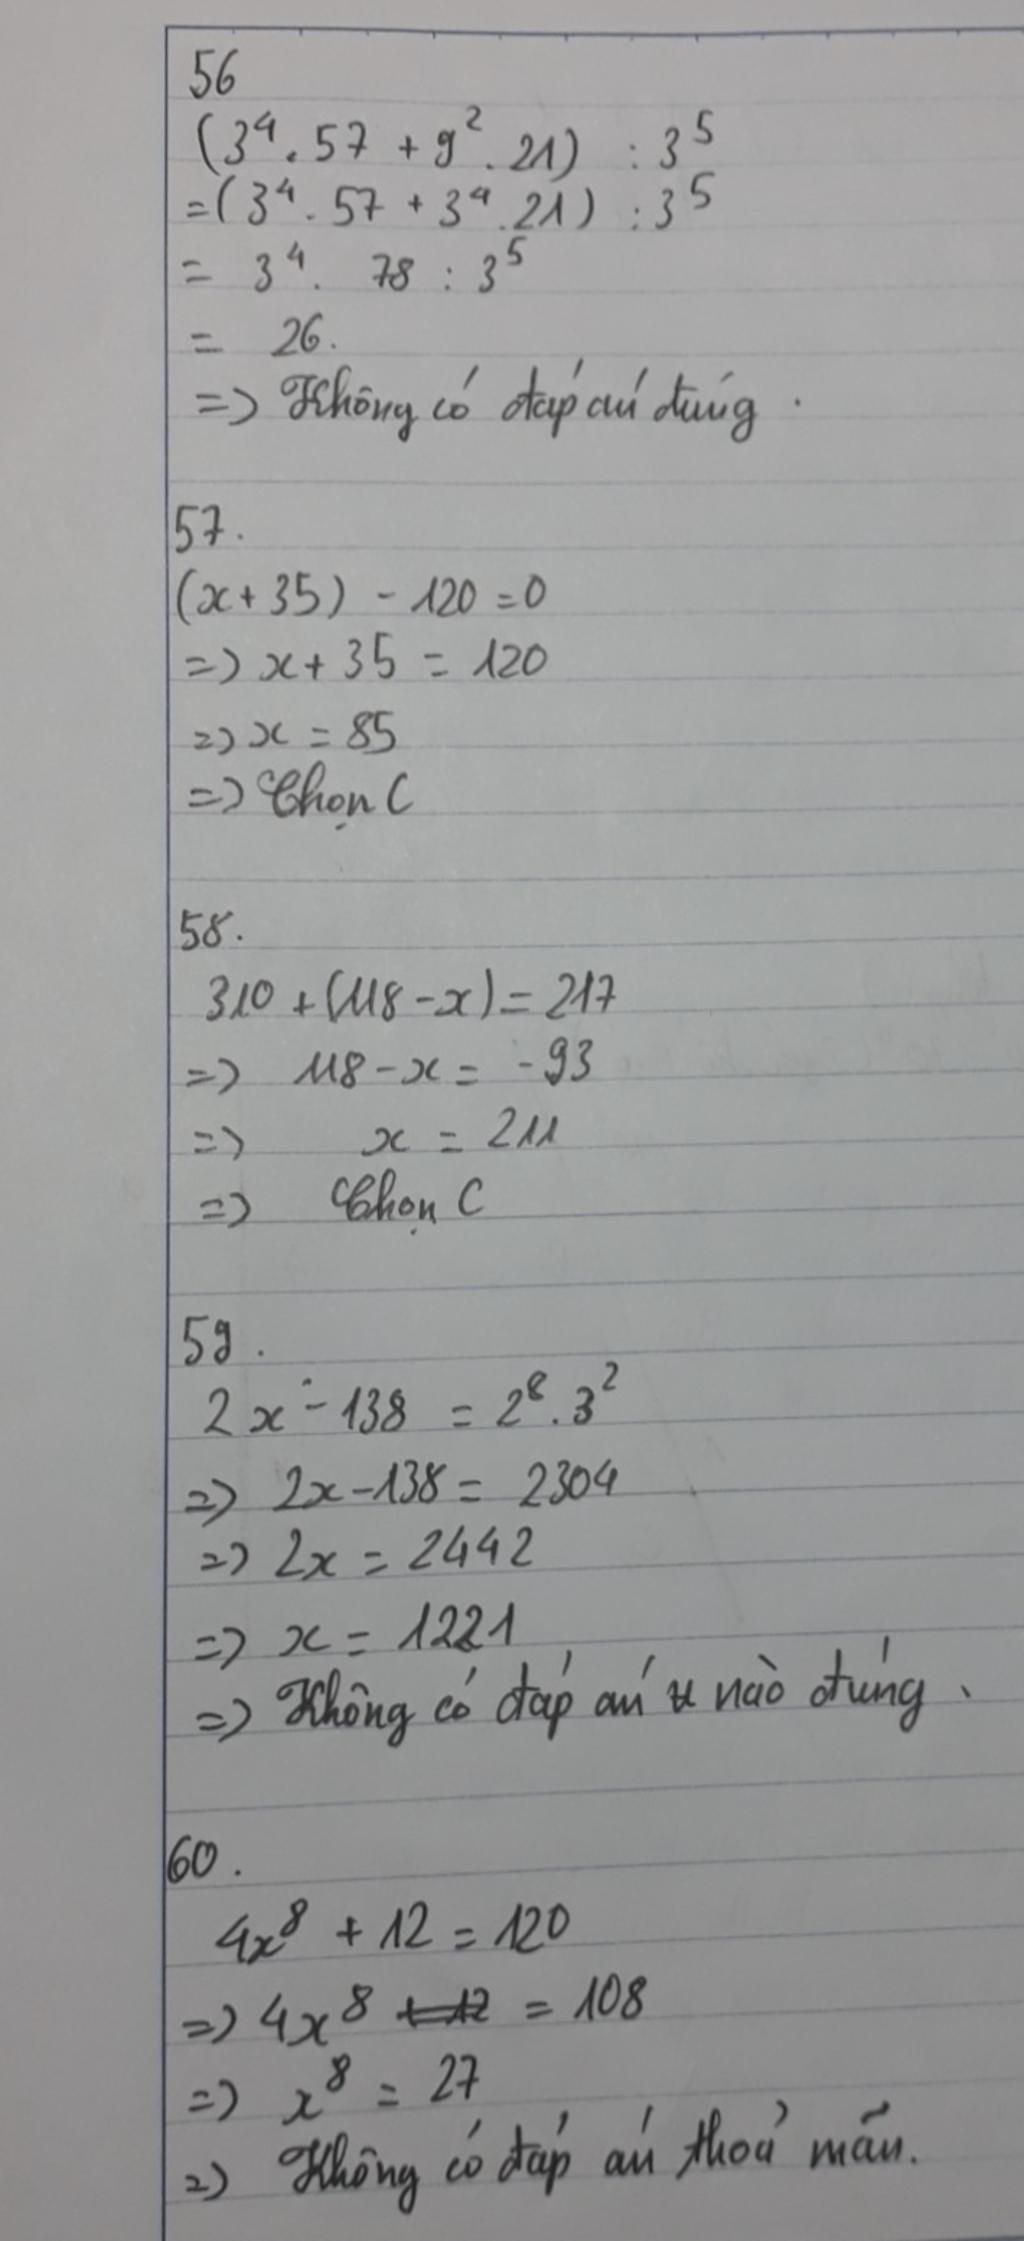 56
(3⁴. 57 + 9². 21) : 3⁵
=(3⁴. 57 + 3⁴. 21) : 3⁵
= 3⁴. 78 : 3⁵
= 26.
=> Không có đáp án đúng.
57.
(x+35) - 120 = 0
=> x + 35 = 120
=> x = 85
=> Chọn C
58.
310 + (118 - x) = 217
=> 118 - x = -93
=> x = 211
=> Chọn C
59.
2x - 138 = 2⁸. 3²
=> 2x - 138 = 2304
=> 2x = 2442
=> x = 1221
=> Không có đáp án nào đúng.
60.
4x⁸ + 12 = 120
=> 4x⁸ = 108
=> x⁸ = 27
=> Không có đáp án thoả mãn.